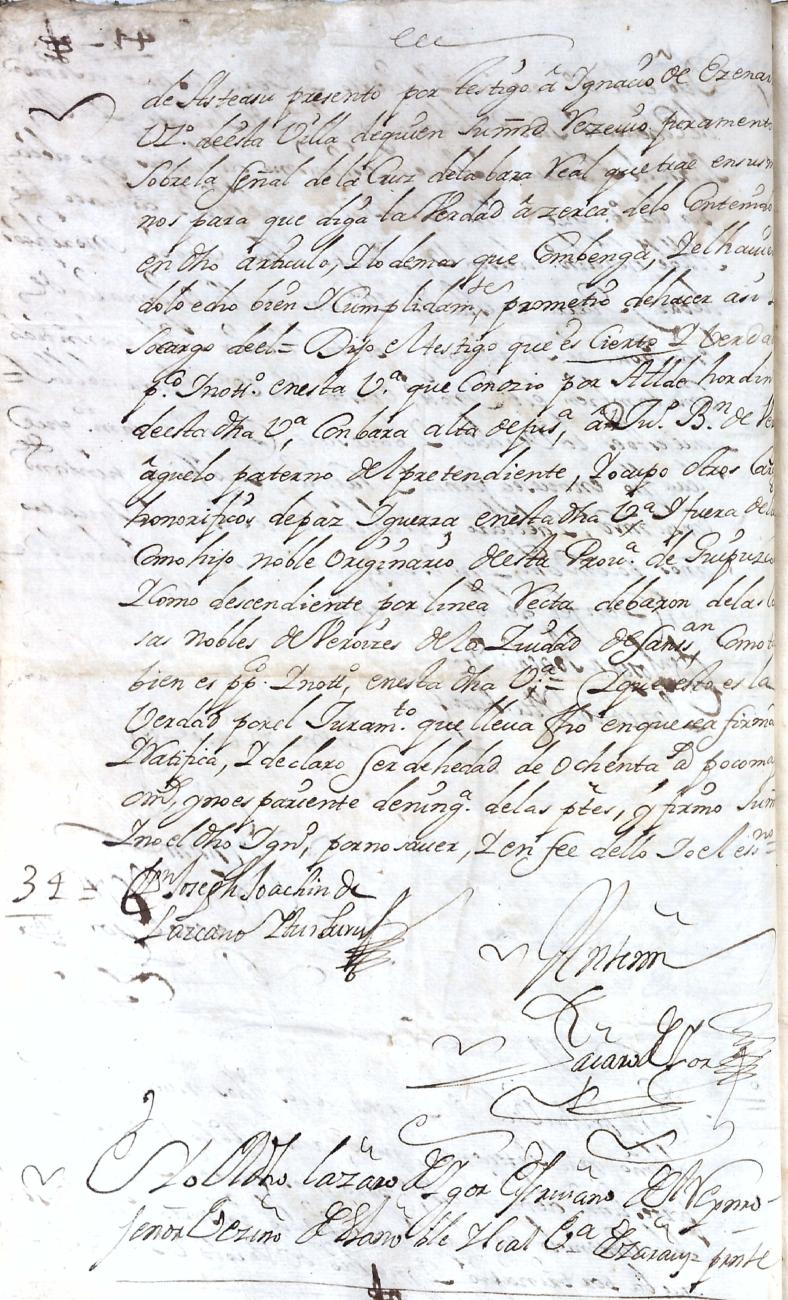 de Asteasu presento por testigo â Ignacio de Ezena
Vzº. deesta Villa dequien Summrd Rezeuio Juramento
Sobre la Señal dela Cruz dela bara Real que trae ensus
nos para que diga la Verdad â zerca delo Contenido
en dho articulo, Ylodemas que Combenga, Yelhauien
dolo echo bien Ycumplidamte, prometio dehacer asi
Socargo deel= Dijo el testigo que es Cierto Y Verdad
pcô Ynottº. enesta Vª. que Conozio por Allde hordin
deesta dha Vª, Conbara alta dejusª, â Dn Juº Bn de
âguelo paterno del pretendiente, Yocupo otros Car
honorificos depaz Yguerra enesta dha Vª Yfuera della
Como hijo noble Originario desta Prouª. de Guipuzcoa
Ycomo descendiente por linea Recta debaron delas
sas nobles de Veroizes de la Ziudad deSanssan Como
bien es ppcô. Ynottº, enesta dha Vª= Yqueesto es la
Verdad porel Juramto. que lleva fho enquesea firma
YRatifica, Ydeclaro Ser dehedad de Ochenta as pocomas
omês, ynoes pariente deningª. delas ptes, y firmo Sum
Ynoel dho Ygnº, pornosauer, Yenfee dello Yoel essno=
34= Dn Joseph Joachin de
Lazcano Yturburu
Antemi
Lazaro de Ygor
Yo el dho Lazaro de Ygor Escriuano del Rey nro
señor Vezino de la noble Y leal Vª de Zarauz prnte